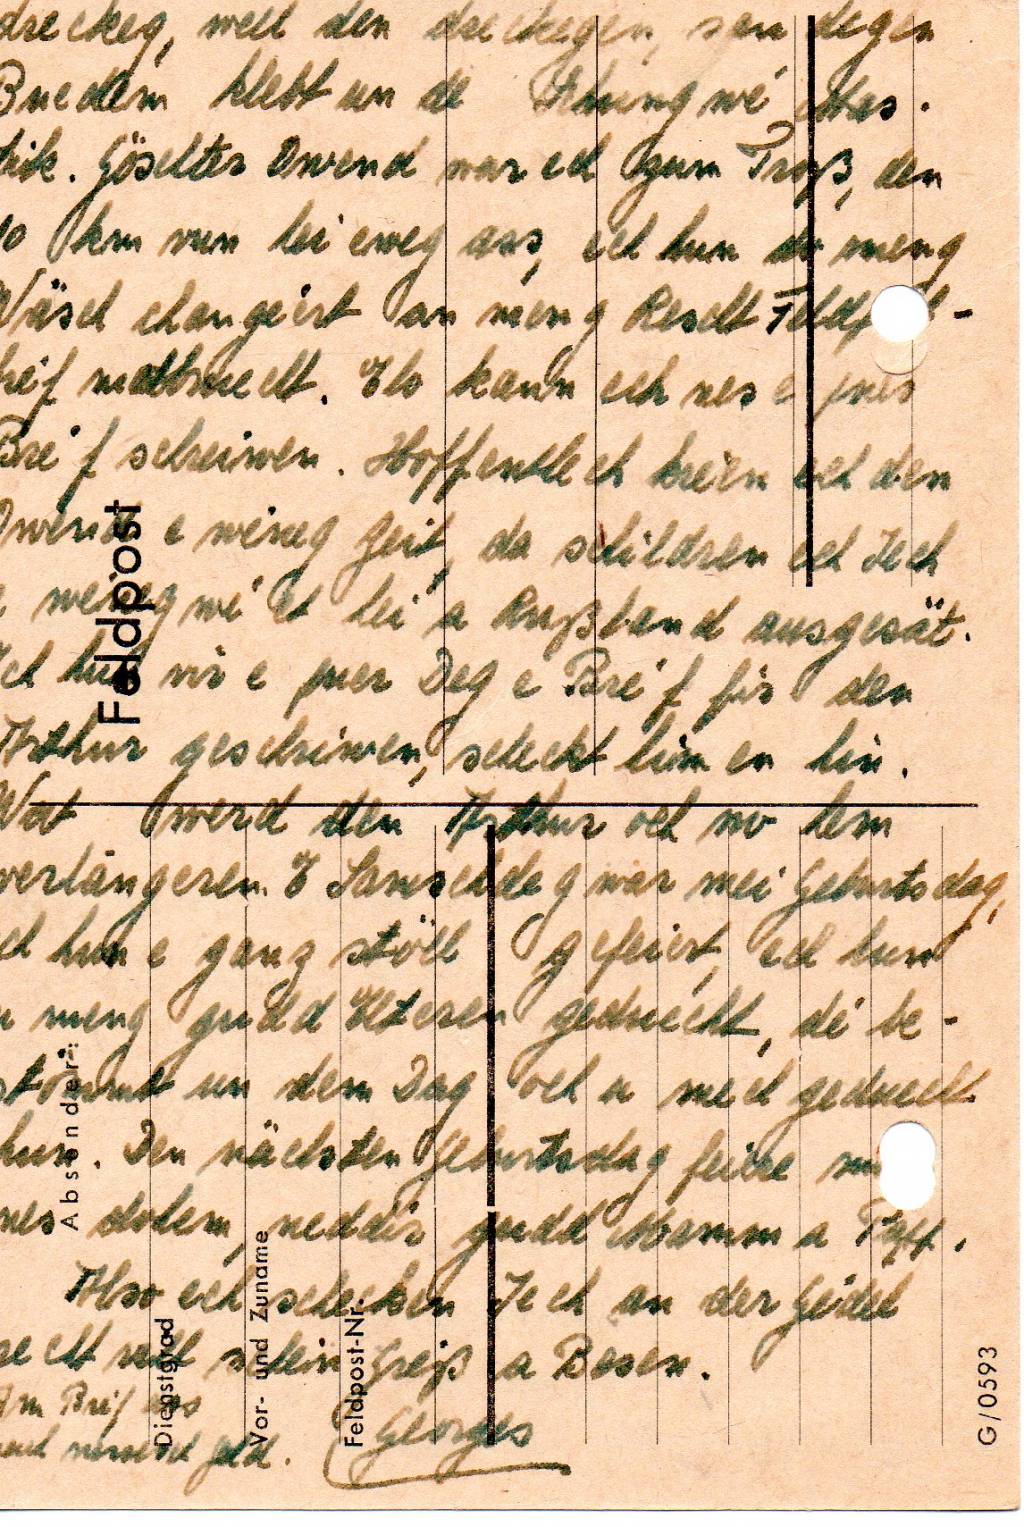 dreckeg, well den dreckegen, sandegen
Buedem klebt un de Schung wé
tik. Göschter Owend war ech zum Troß, den
10 km vun hei eweg ass, ech hun do meng
Wäsch changéert an meng Rescht Feldp -
bréif matbruecht. Elo kann ech nes e puer
Bréif schreiwen. Hoffentlech kréien ech den
Owend e wéineg Zeit, da schildren ech Iech
e wéineg wé et hei a Rußland ausgesät.
Ech hun vir e puer Deg e Bréif fir den
Arthur geschriwen, scheckt him en hin.
Wat werd den Arthur och no hem
verlängeren. E Samschdeg war mei Geburtsdag,
ech hun e ganz stöll gefeiert, ech hun
u meng gudd Elteren geduecht, dé be -
stömmt un dem Dag och u mech geduecht
hun. Den nächsten Geburtsdag feiere m
nes dohem, neddir gudd Mamm a Papp.
Also ech schecken Iech an der Gédel
recht vill schéin Gréiß a Besen.
Am Bréif ass
och Geld.
Georges
Feldpost
Absender:
Dienstgrad
Vor- und Zuname
Feldpost-Nr.
G/0593